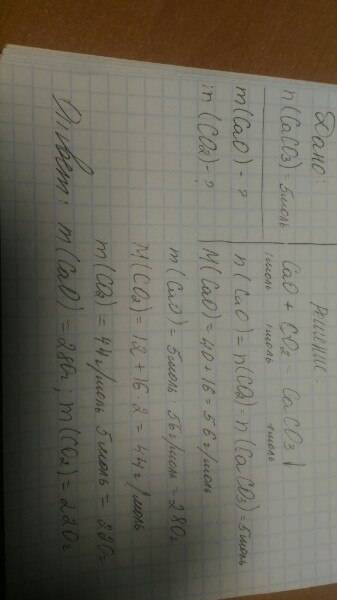 Дано:
n(CaCO3) = 5моль
m(CaO) - ?
m(CO2) - ?
решение:
CaO + CO2 = CaCO3↓
1моль 1моль 1моль
n(CaO) = n(CO2) = n(CaCO3) = 5моль
M(CaO) = 40+16 = 56г/моль
m(CaO) = 5моль 56г/моль = 280г
M(CO2) = 12+16·2 = 44г/моль
m(CO2) = 44г/моль 5моль = 220г
Ответ: m(CaO) = 280г, m(CO2) = 220г